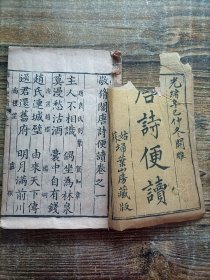 光緒辛巳仲冬開雕
唐詩便讀
埽葉山房藏版
唐詩便讀卷之
主人不相識 偶坐為林泉
莫謾愁沽酒 囊中自有錢
趙氏連城璧 由來天下傳
送君還舊府 明月滿前川